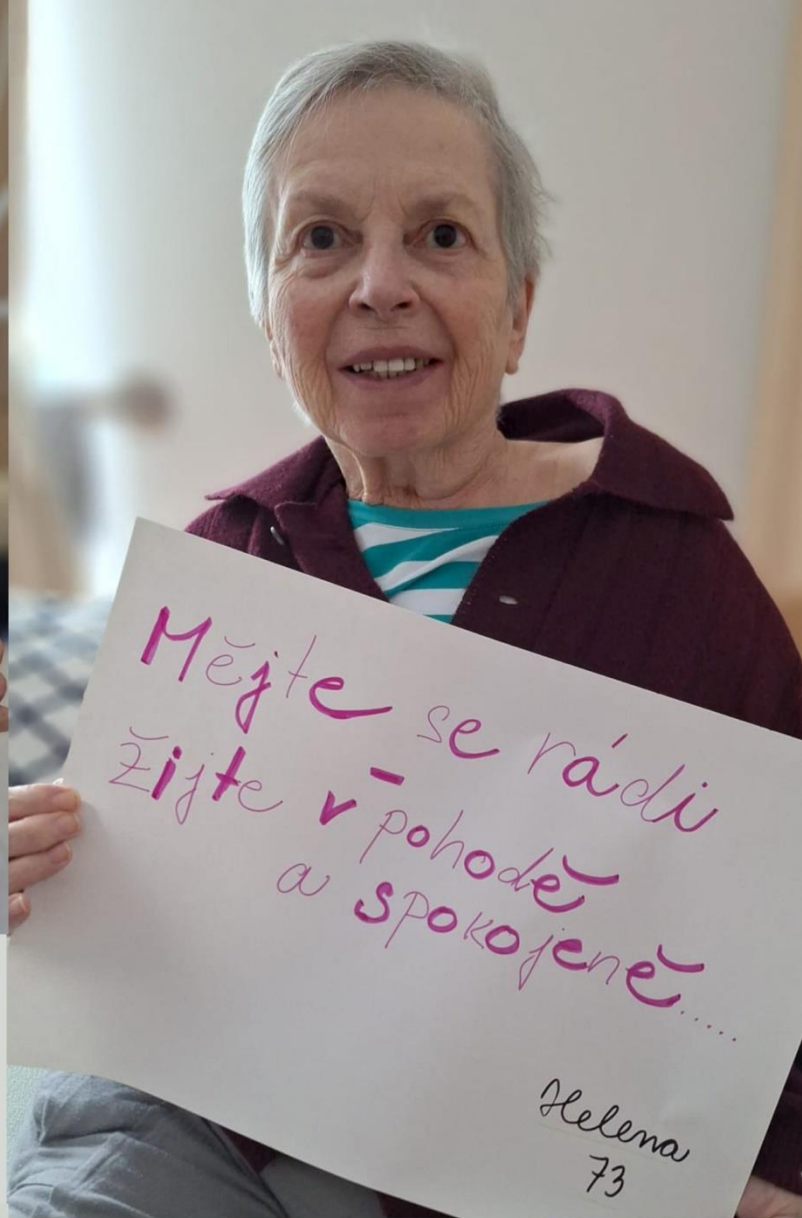 Mějte se rádi
žijte v pohodě
a spokojeně.....
Helena
73